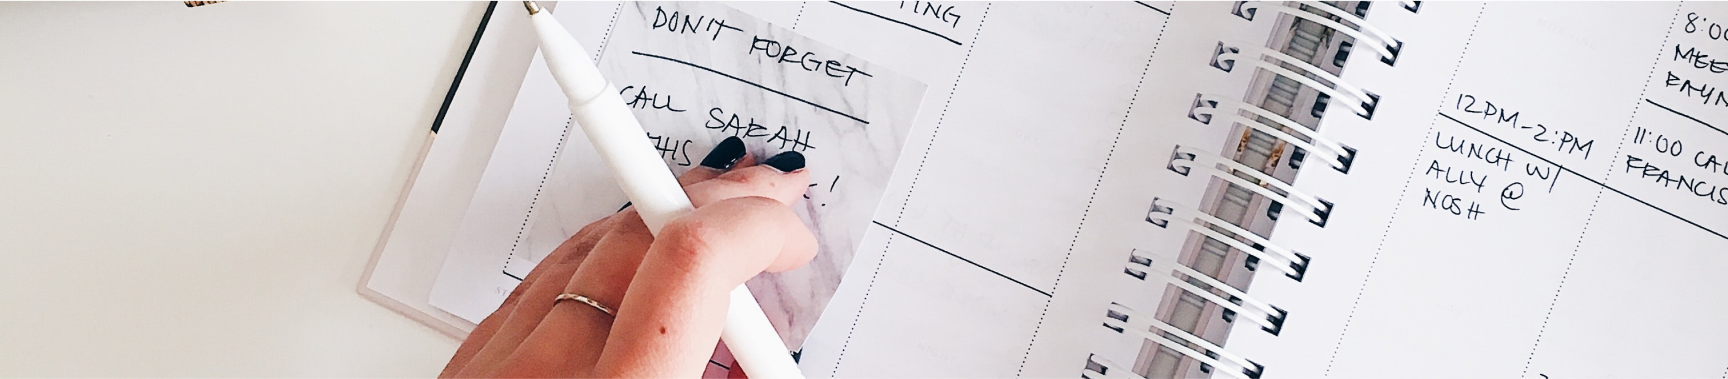 TING
DON'T FORGET
CALL SARAH
THIS
!
12PM-2:PM
LUNCH W/
ALLY @
NOSH
8:00
MEE
RAYN
11:00 CAL
FRANCIS